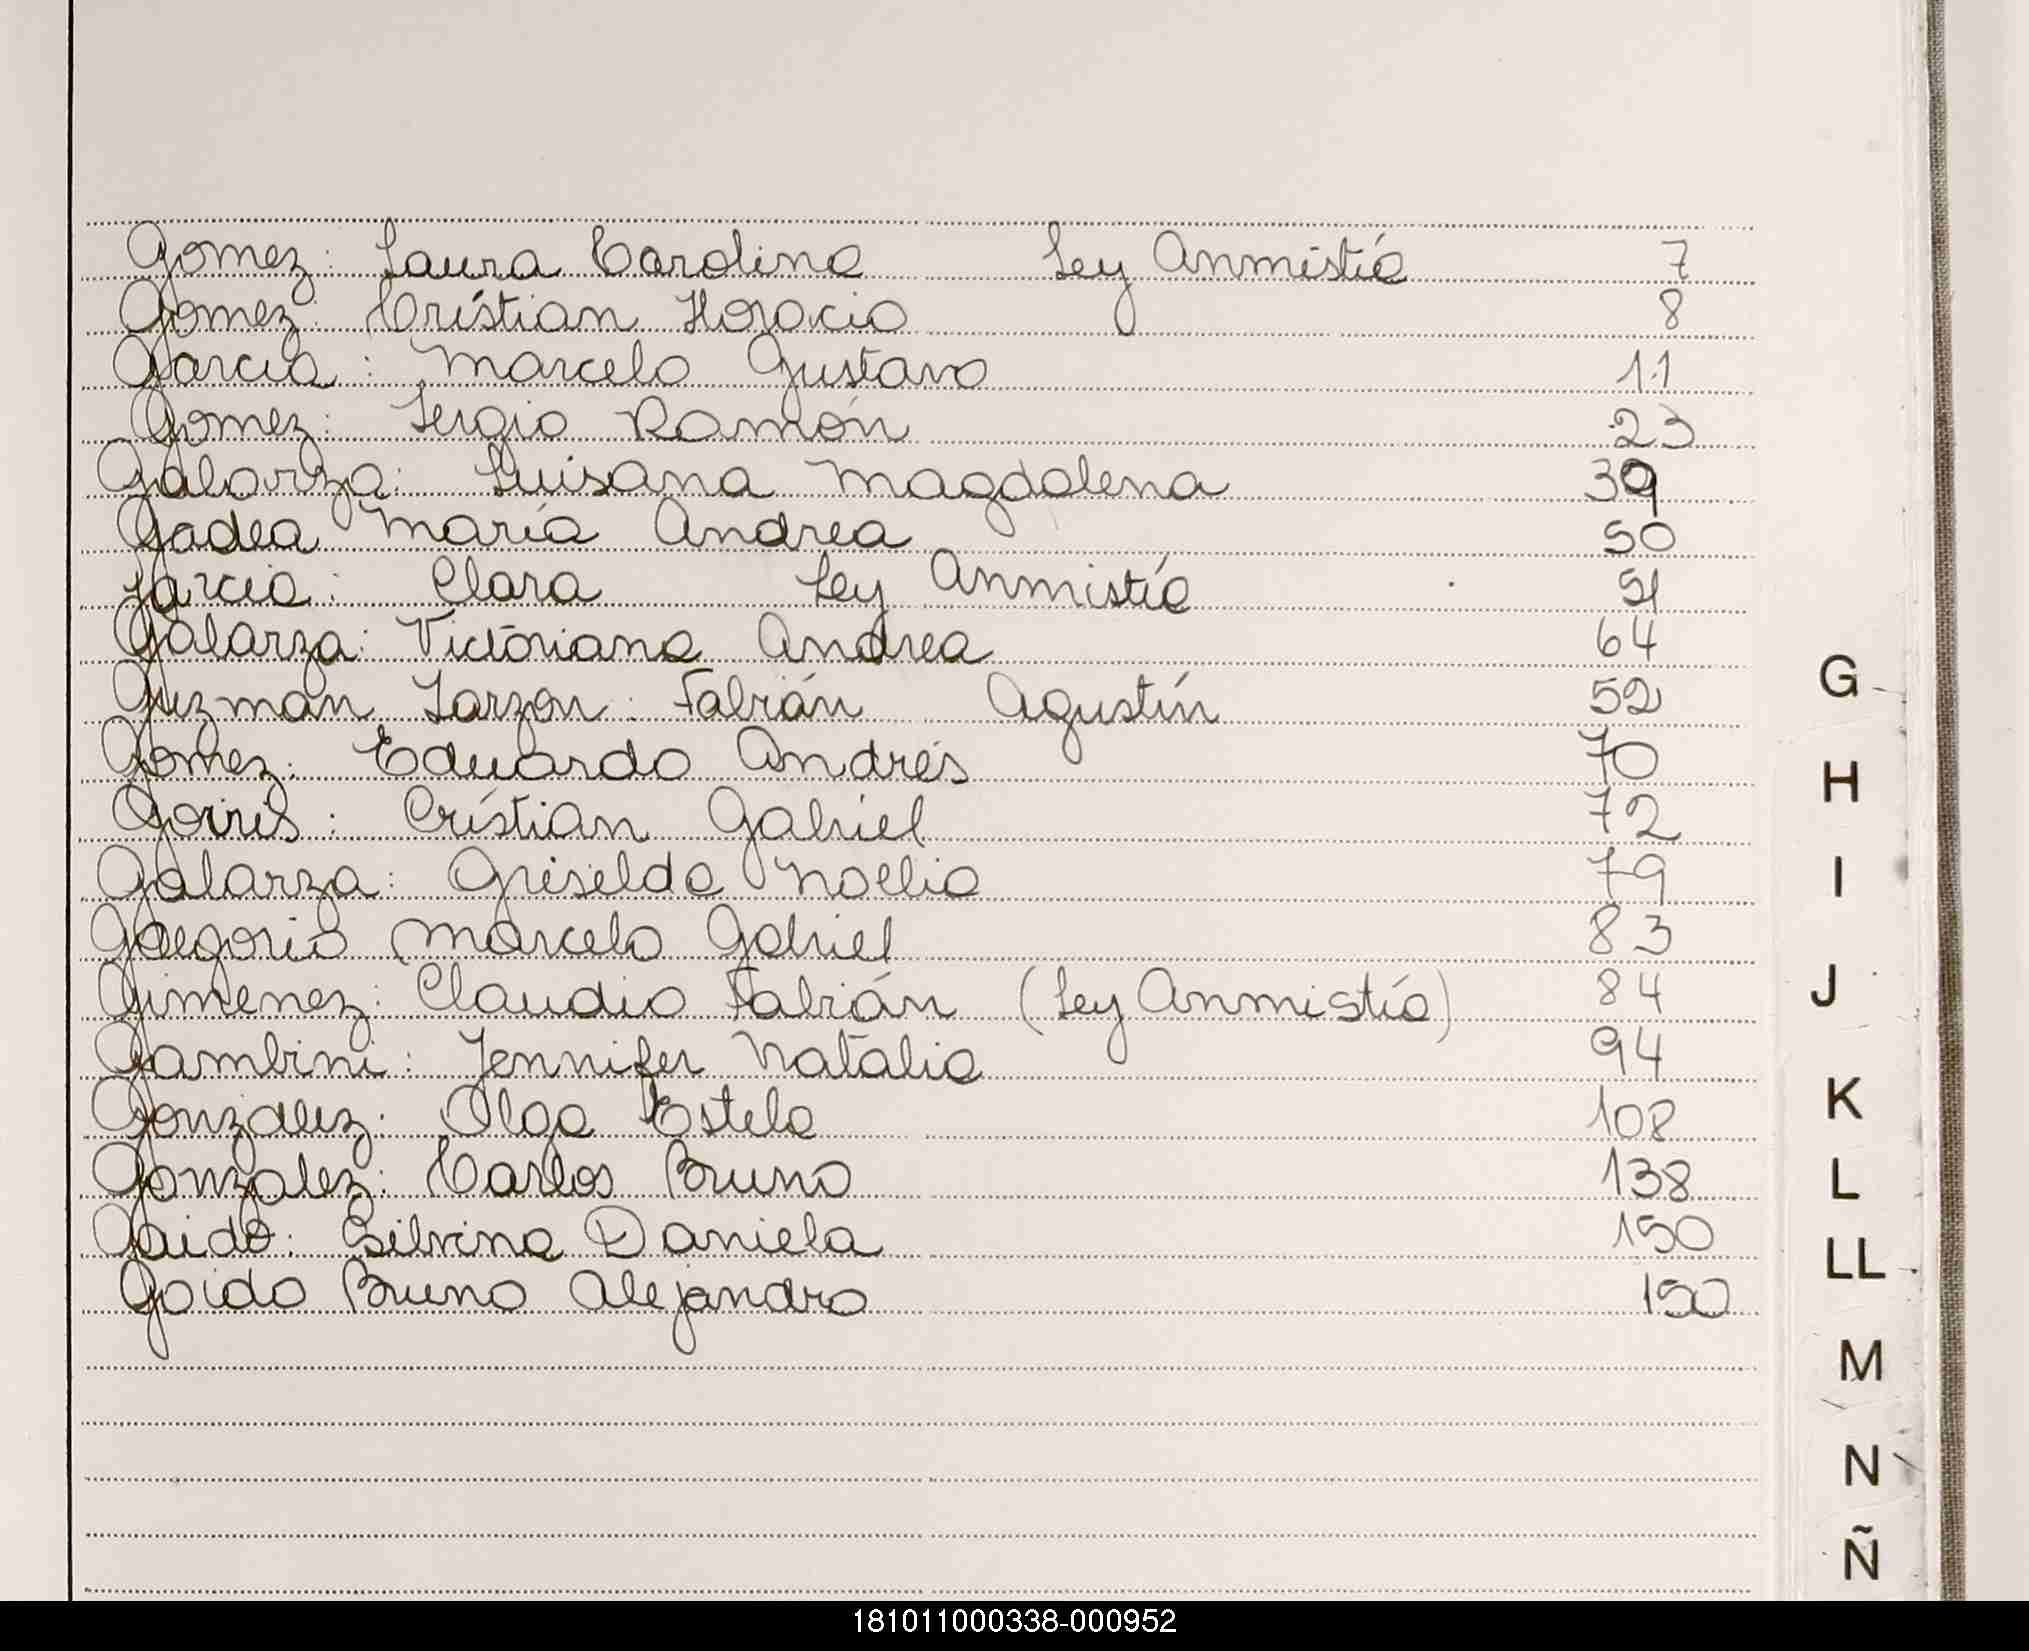 Gomez: Laura Carolina Ley Anmistía 7
Gomez: Cristian Horacio 8
Garcia: Marcelo Gustavo 11
Gomez: Sergio Ramón 23
Galarza: Luisana Magdalena 39
Gadea María Andrea 50
Garcia: Clara Ley Anmistía 51
Galarza: Victoriana Andrea 64
Guzman Garzon: Fabián Agustín 52
Gomez: Eduardo Andrés 70
Cristian Gabriel 72
Galarza: Griselda Noelia 79
Gregorio Marcelo Gabriel 83
Gimenez: Claudio Fabián (Ley Anmistía) 84
Gambini: Jennifer Natalia 94
Gonzalez: Olga Estela 108
Gonzalez: Carlos Bruno 138
Gaido: Silvina Daniela 150
Gaido Bruno Alejandro 150
G
H
I
J
K
L
LL
M
N
Ñ
181011000338-000952